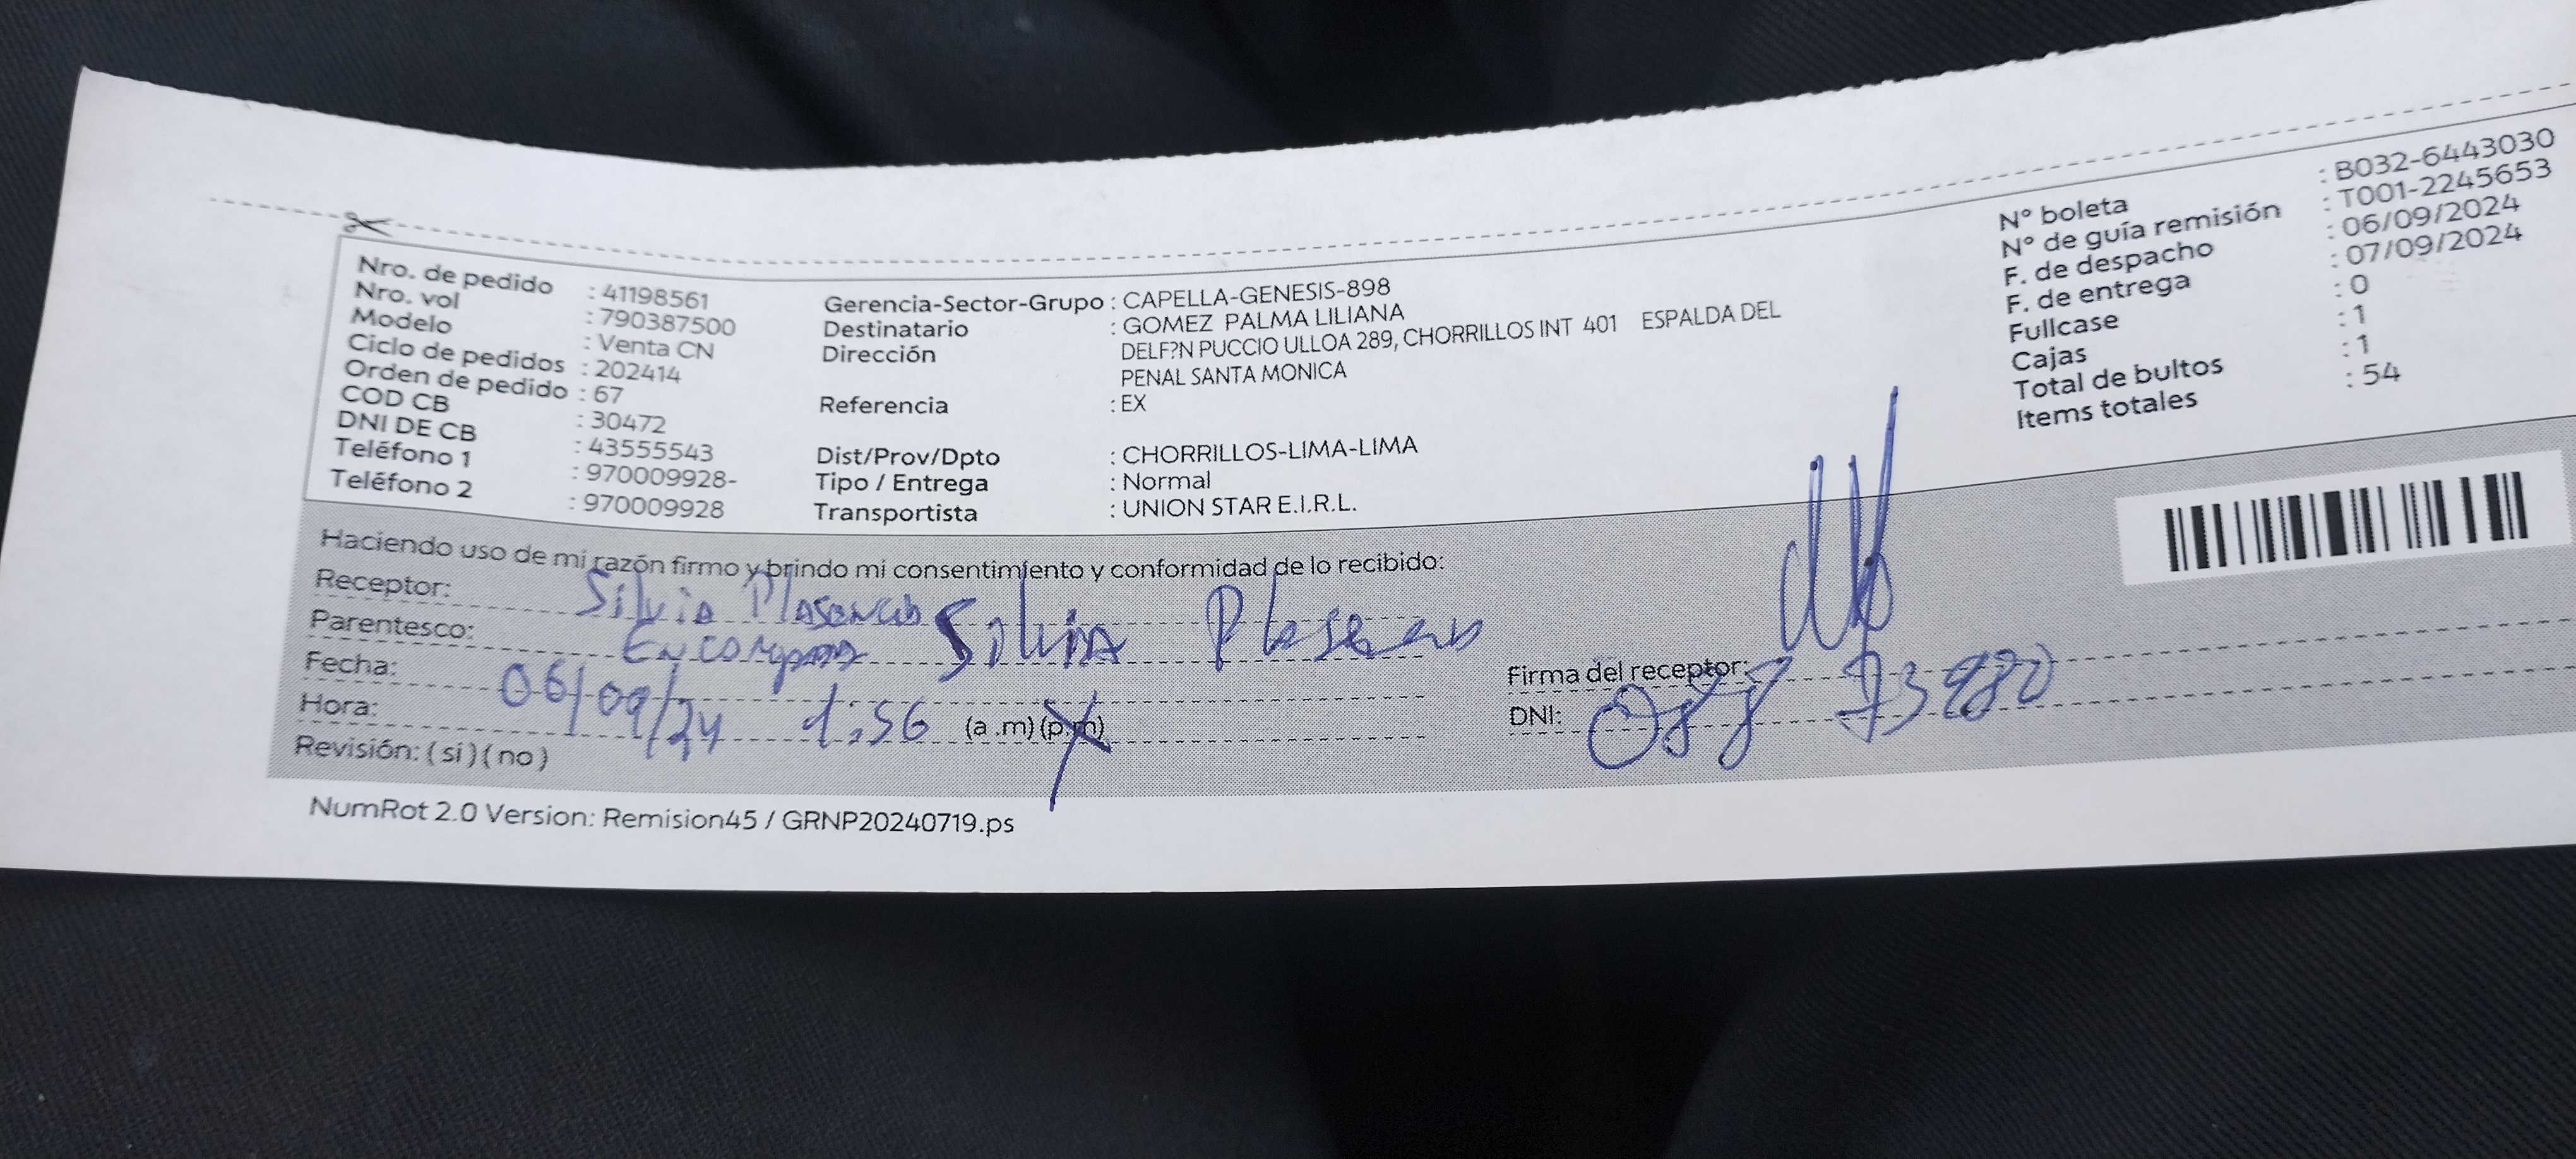 Nro. de pedido : 41198561
Nro. vol : 790387500
Modelo : Venta CN
Ciclo de pedidos : 202414
Orden de pedido : 67
COD CB : 30472
DNI DE CB : 43555543
Teléfono 1 : 970009928-
Teléfono 2 : 970009928
Gerencia-Sector-Grupo : CAPELLA-GENESIS-898
Destinatario : GOMEZ PALMA LILIANA
Dirección DELF?N PUCCIO ULLOA 289, CHORRILLOS INT 401 ESPALDA DEL
PENAL SANTA MONICA
Referencia : EX
Dist/Prov/Dpto : CHORRILLOS-LIMA-LIMA
Tipo / Entrega : Normal
Transportista : UNION STAR E.I.R.L.
N° boleta : B032-6443030
N° de guía remisión : T001-2245653
F. de despacho : 06/09/2024
F. de entrega : 07/09/2024
Fullcase : 0
Cajas : 1
Total de bultos : 1
Items totales : 54
Haciendo uso de mi razón firmo y brindo mi consentimiento y conformidad de lo recibido:
Receptor: Silvia Plasencia
Parentesco: Silvia Plasencia
Fecha: 06/09/24
Hora: 1:56 (a.m)(p.m)
Revisión: ( si ) ( no )
Firma del receptor:
DNI: 08873980
NumRot 2.0 Version: Remision45 / GRNP20240719.ps